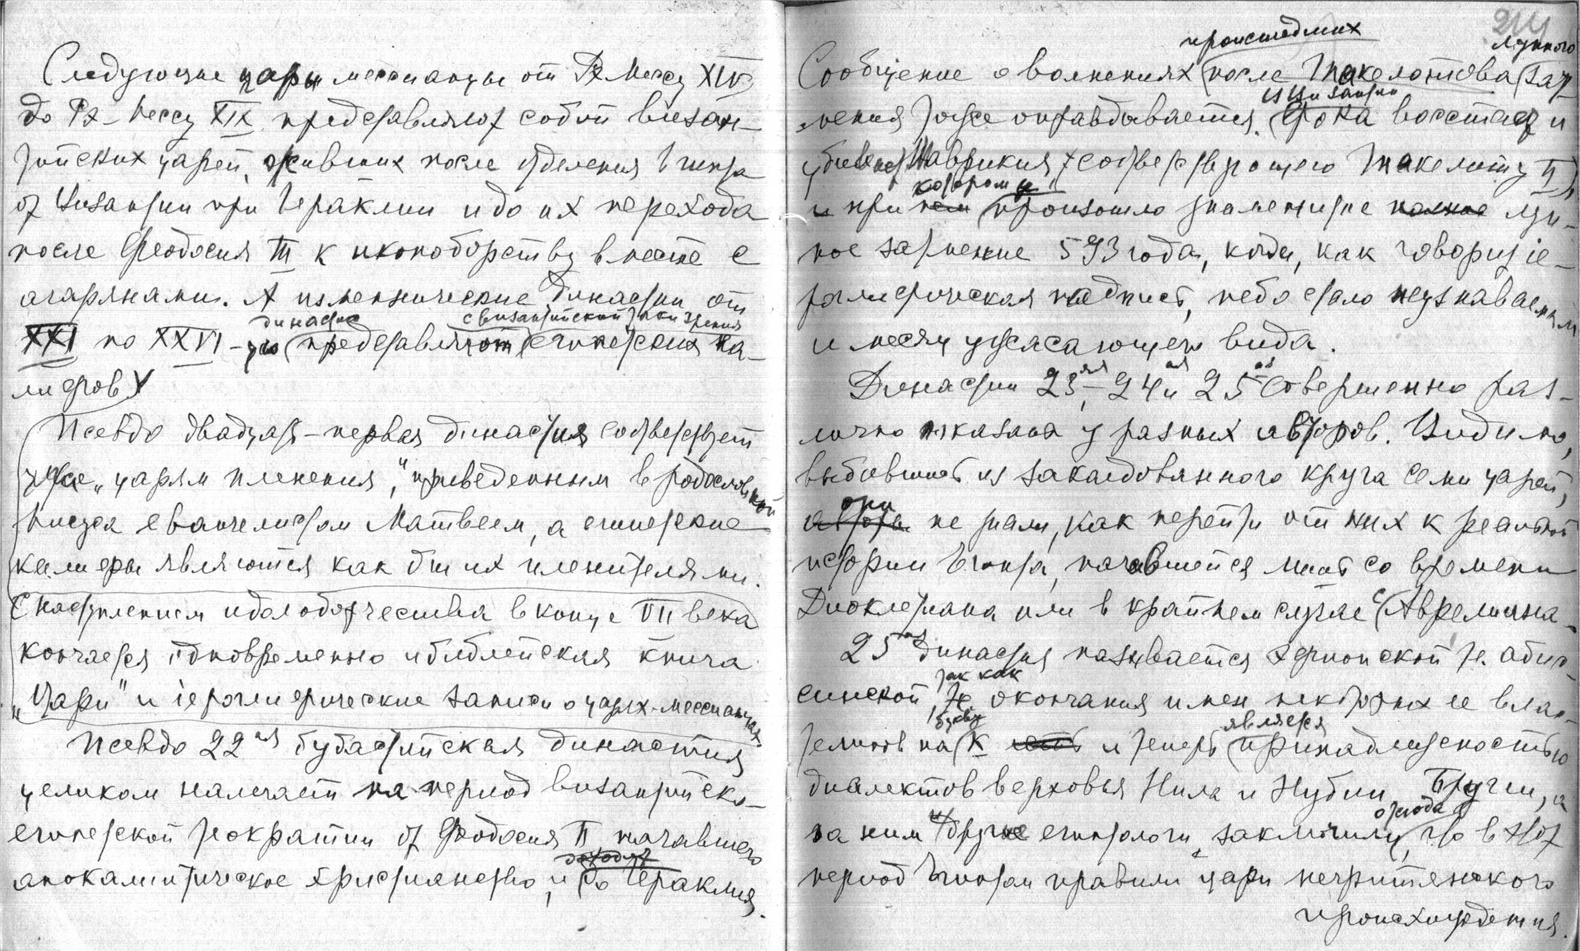 Следующие цари мессианцы от Рх-Мессу XIV
до Рх-Мессу XIX представляют собой визан-
тийских царей, живших после отделения Египта
от Византии при Гераклии и до их перехода
после Феодосия III к иконоборству вместе с
агарянами. А династии от
династию с византийской точки зрения
XXI по XXVI-ую представляют египетских ка-
лифов
Псевдо двадцать-первая династия соответствует
уже „царям пленения," приведенным в родословной
Иисуса евангелистом Матвеем, а египетские
калифы являются как бы их пленителями.
С наступлением идолоборчества в конце VII века
кончается одновременно и библейская книга
„Цари" и іероглифические записи о царях-мессианцах
Псевдо 22ая бубастийская династия
целиком налегает на период византийско-
египетской теократии от Феодосия II начавшего
апокалиптическое христианство, и до Гераклия.
214
происшедших
лунного
Сообщение о волнениях после Такелотова зат-
в Византии
мения тоже оправдывается. Фока восстал и
убил Маврикия, соответствующего Такелоту II,
котором и
и при нем произошло знаменитое полное лун-
ное затмение 593 года, когда, как говорит іе-
роглифическая надпись, небо стало неузнаваемым
и месяц ужасающего вида.
Династии 23ья, 24ая и 25ая совершенно раз-
лично показана у разных авторов. Видимо,
выбившись из заколдованного круга семи царей,
они
не знали, как перейти от них к реальной
истории Египта, начавшейся лишь со времени
Диоклетиана или в крайнем случае с Аврелиана.
25ая династия называется эфиопской т.е. абис-
так как
синской, окончания имен некоторых ее влас-
букву является
телинов на К и теперь принадлежностью
диалектов верховья Нила и Нубии. Бругш, а
отсюда
за ним и другие египтологи, заключили, что в этот
период Египтом правили цари негритянского
происхождения.